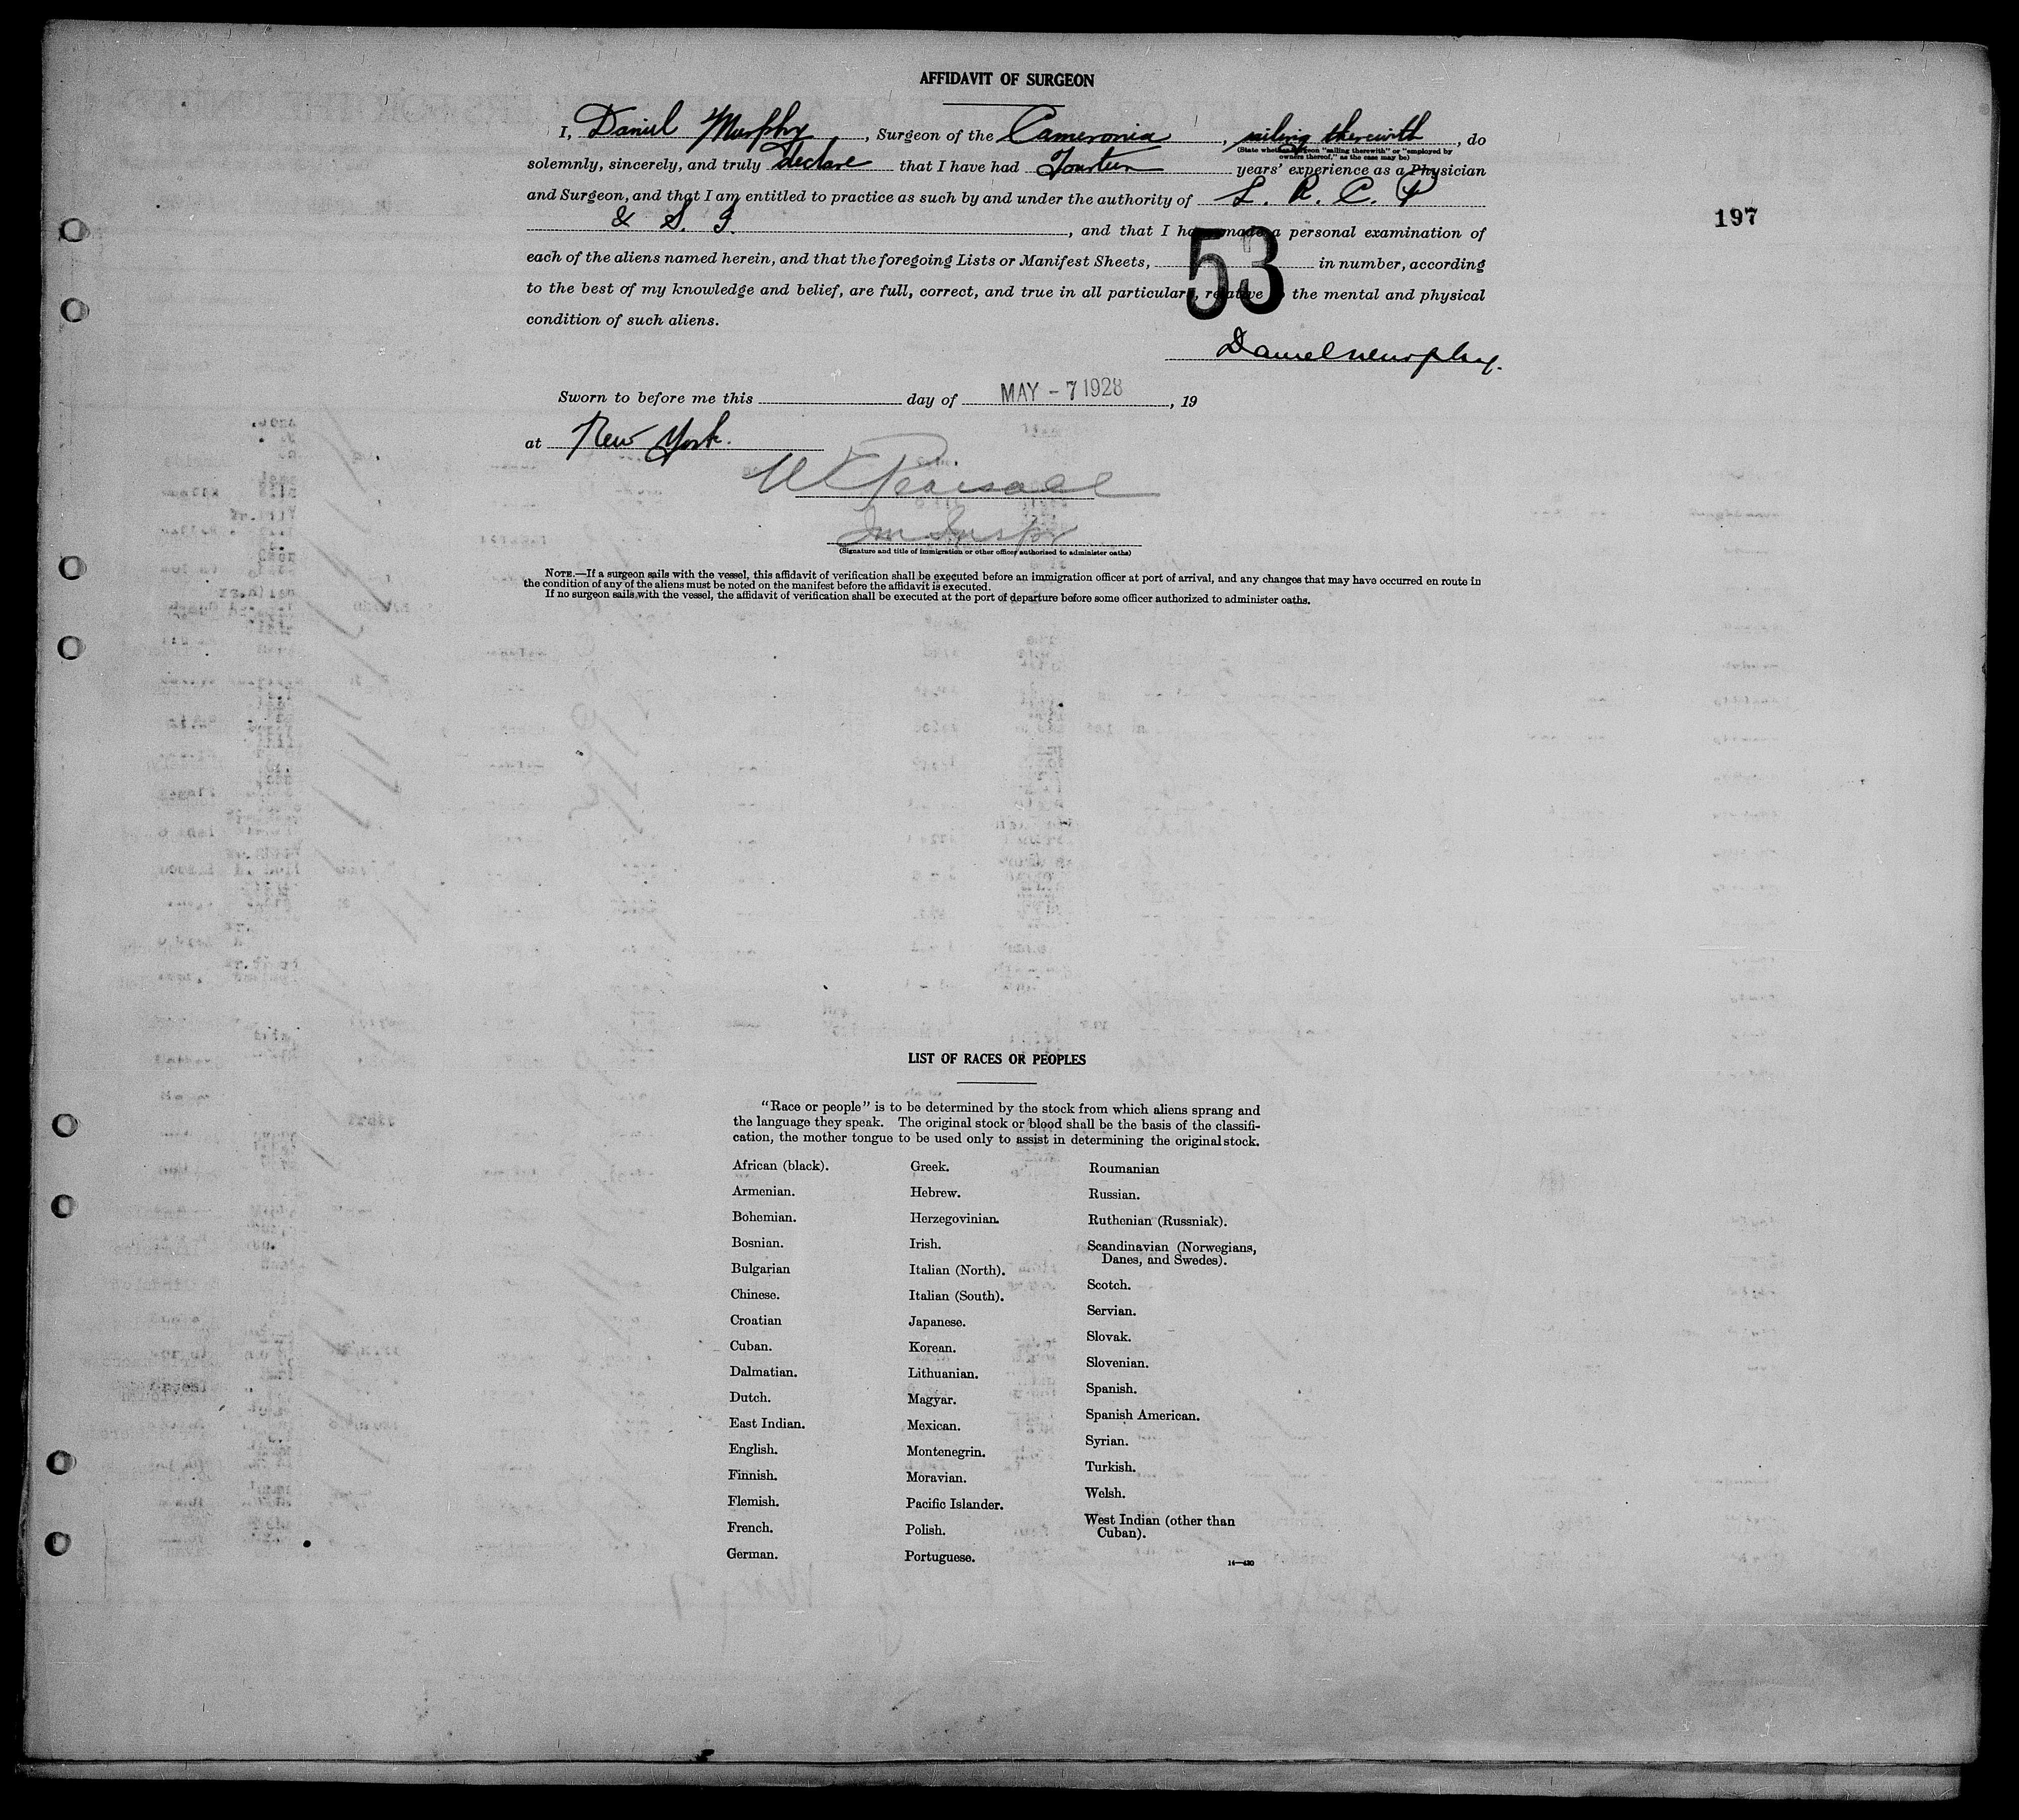 AFFIDAVIT OF SURGEON
I, Daniel Murphy, Surgeon of the Cameronia, sailing therewith, do
(State whether surgeon "sailing therewith" or "employed by
owners thereof," as the case may be)
solemnly, sincerely, and truly declare that I have had Fourteen years' experience as a Physician
and Surgeon, and that I am entitled to practice as such by and under the authority of L. R. C. P
& S. I., and that I have made a personal examination of
197
each of the aliens named herein, and that the foregoing Lists or Manifest Sheets, 53 in number, according
to the best of my knowledge and belief, are full, correct, and true in all particulars, relative to the mental and physical
condition of such aliens.
Daniel Murphy.
Sworn to before me this day of MAY - 7 1928, 19
at New York.
Im Inspr
(Signature and title of immigration or other officer authorized to administer oaths)
NOTE.—If a surgeon sails with the vessel, this affidavit of verification shall be executed before an immigration officer at port of arrival, and any changes that may have occurred en route in
the condition of any of the aliens must be noted on the manifest before the affidavit is executed.
If no surgeon sails with the vessel, the affidavit of verification shall be executed at the port of departure before some officer authorized to administer oaths.
LIST OF RACES OR PEOPLES
"Race or people" is to be determined by the stock from which aliens sprang and
the language they speak. The original stock or blood shall be the basis of the classifi-
cation, the mother tongue to be used only to assist in determining the original stock.
African (black).
Armenian.
Bohemian.
Bosnian.
Bulgarian
Chinese.
Croatian
Cuban.
Dalmatian.
Dutch.
East Indian.
English.
Finnish.
Flemish.
French.
German.
Greek.
Hebrew.
Herzegovinian.
Irish.
Italian (North).
Italian (South).
Japanese.
Korean.
Lithuanian.
Magyar.
Mexican.
Montenegrin.
Moravian.
Pacific Islander.
Polish.
Portuguese.
Roumanian
Russian.
Ruthenian (Russniak).
Scandinavian (Norwegians,
Danes, and Swedes).
Scotch.
Servian.
Slovak.
Slovenian.
Spanish.
Spanish American.
Syrian.
Turkish.
Welsh.
West Indian (other than
Cuban).
14—430